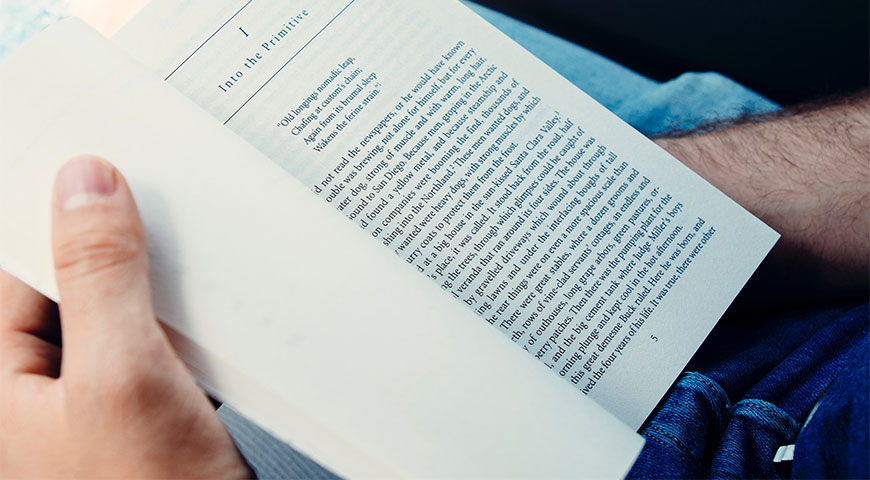 I
Into the Primitive
"Old longings nomadic leap,
Chafing at custom's chain;
Again from its brumal sleep
Wakens the ferine strain."¹
did not read the newspapers, or he would have known
ouble was brewing, not alone for himself, but for every
ater dog, strong of muscle and with warm, long hair,
ound to San Diego. Because men, groping in the Arctic
found a yellow metal, and because steamship and
on companies were booming the find, thousands of
shing into the Northland.² These men wanted dogs, and
wanted were heavy dogs, with strong muscles by which
urry coats to protect them from the frost.
d at a big house in the sun-kissed Santa Clara Valley.³
place, it was called. It stood back from the road, half
g the trees, through which glimpses could be caught of
l veranda that ran around its four sides. The house was
by gravelled driveways which wound about through
ing lawns and under the interlacing boughs of tall
the rear things were on even a more spacious scale than
There were great stables, where a dozen grooms and
rth, rows of vine-clad servants' cottages, an endless and
y of outhouses, long grape arbors, green pastures, or-
berry patches. Then there was the pumping plant for the
l, and the big cement tank where Judge Miller's boys
orning plunge and kept cool in the hot afternoon.
this great demesne Buck ruled. Here he was born, and
ived the four years of his life. It was true, there were other
5